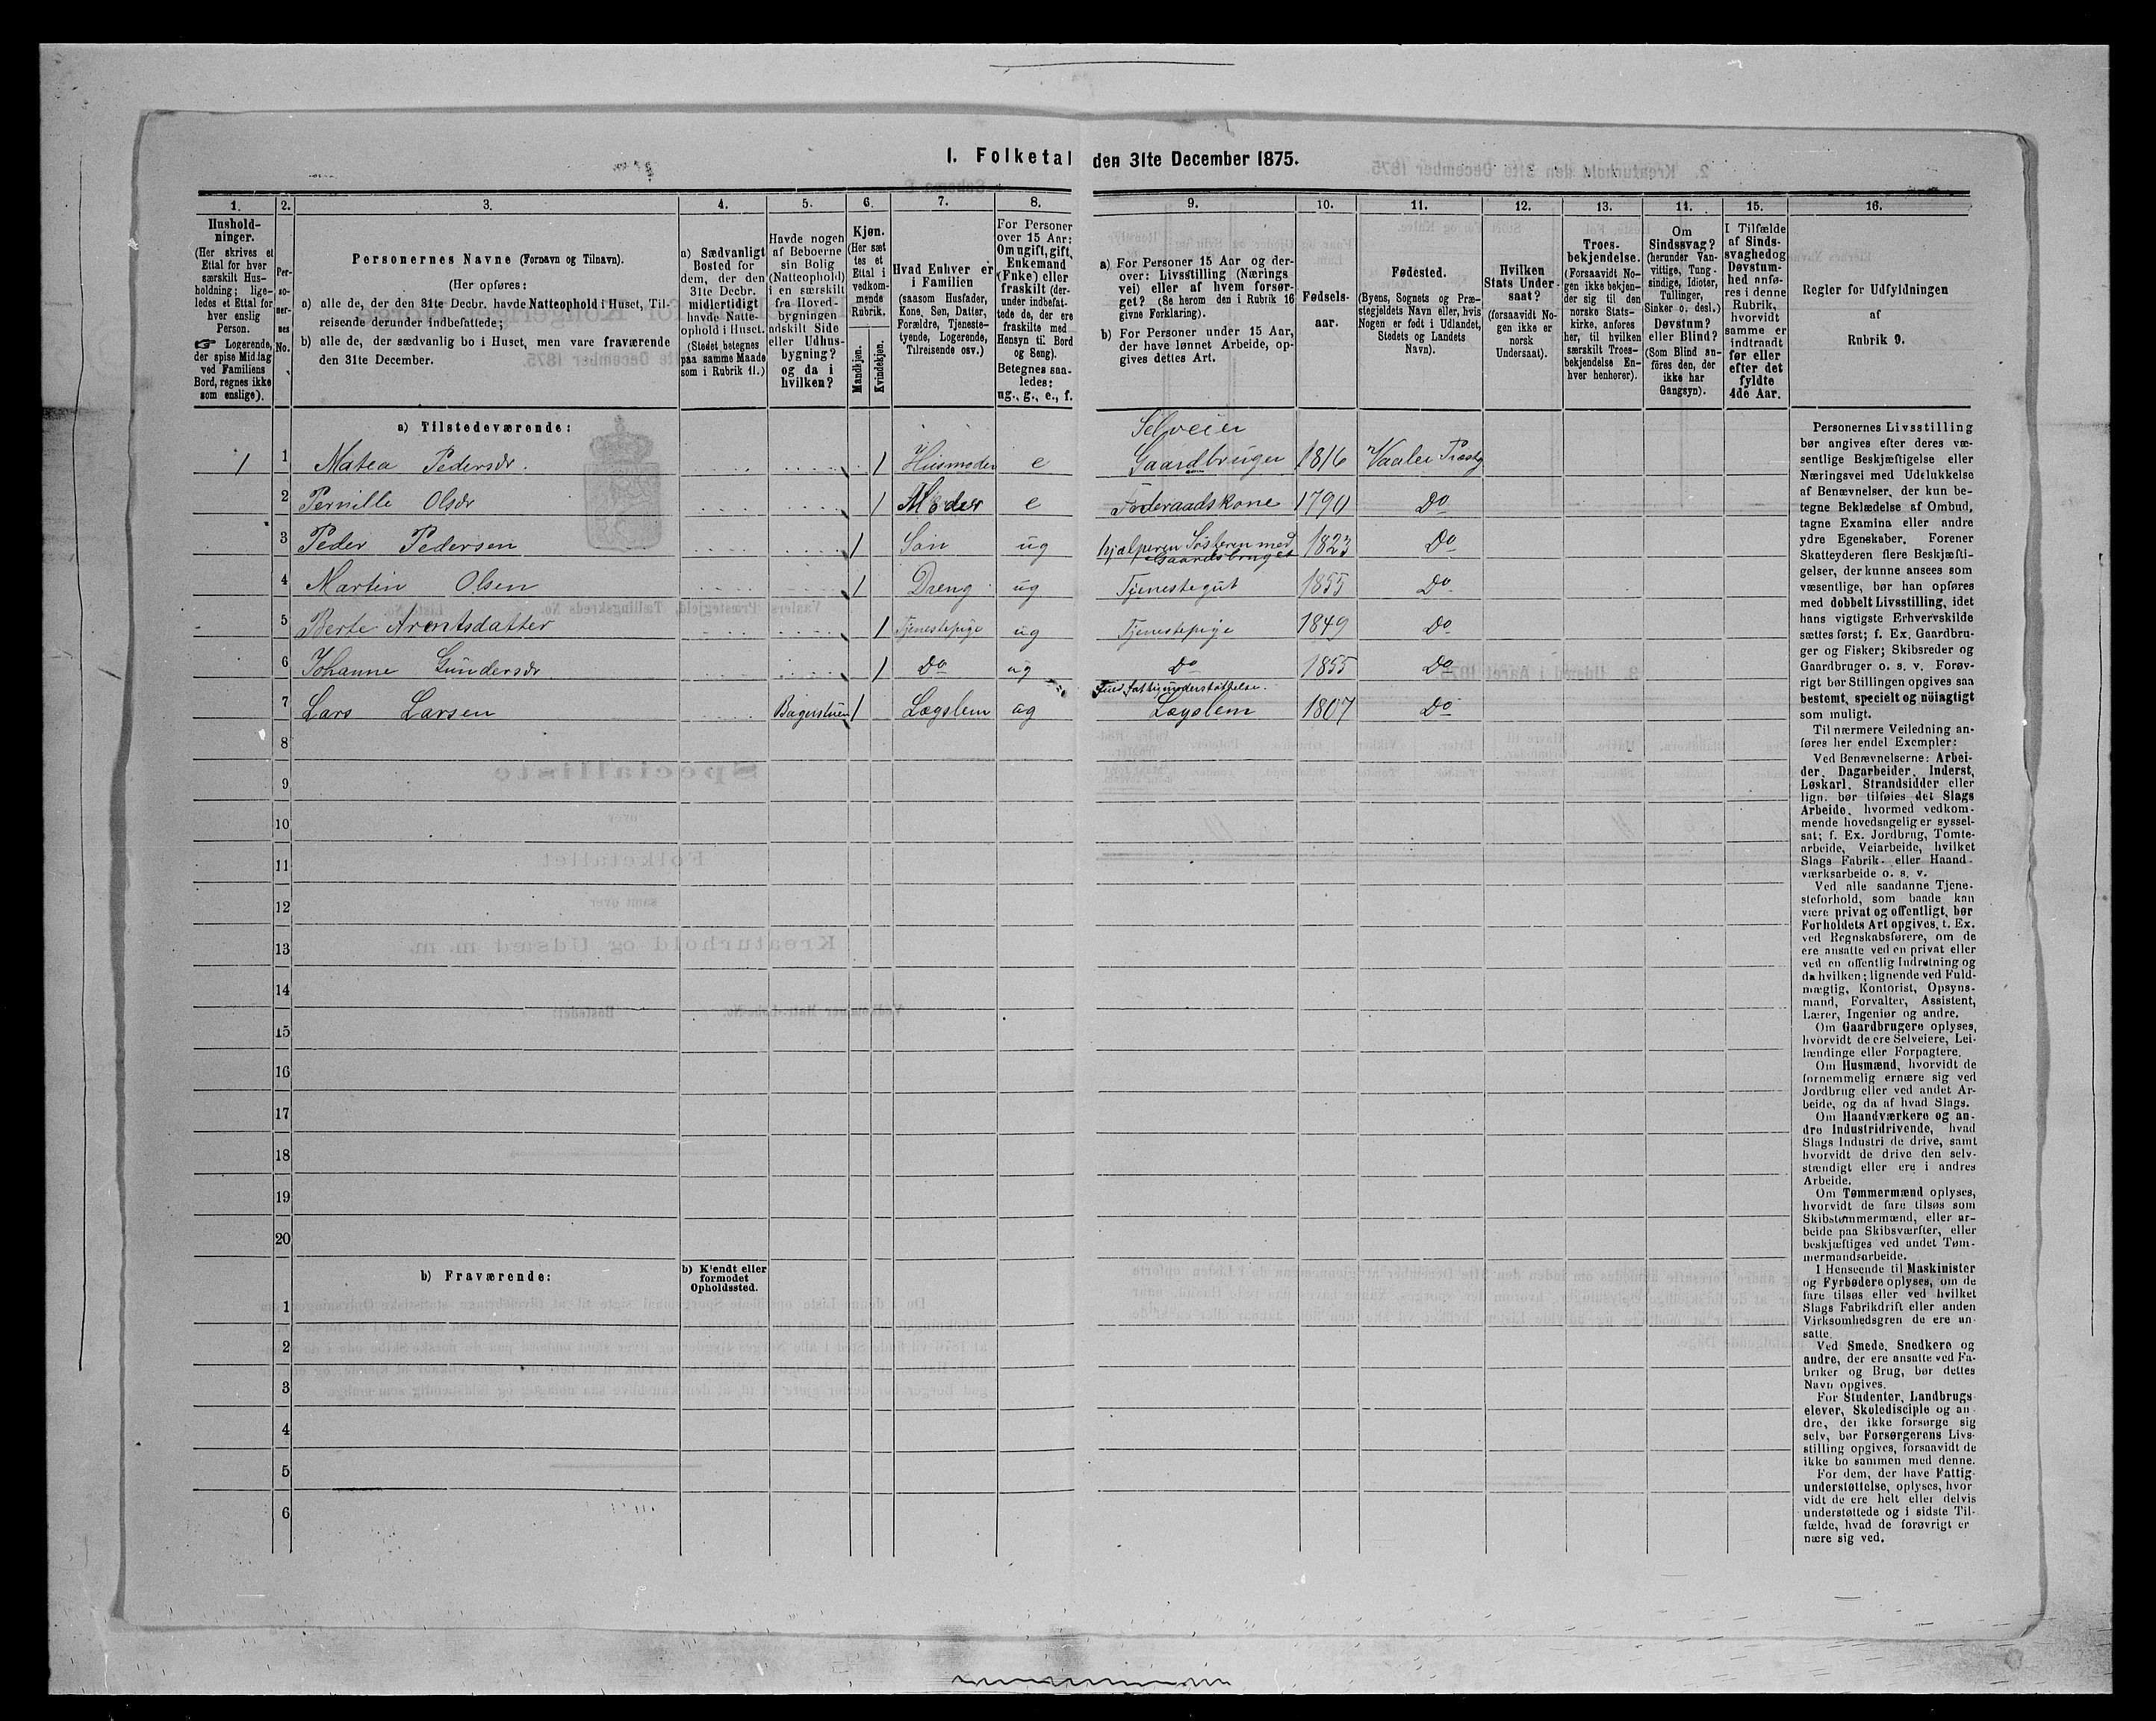 I. Folketal den 31te December 1875.
1. 2. 3. 4. 5. 6. 7. 8. 9. 10. 11. 12. 13. 14. 15. 16.
Hushold-
ninger.
(Her skrives et
Ettal for hver
særskilt Hus-
holdning; lige-
ledes et Ettal for
hver enslig
Person.
☞ Logerende,
der spise Middag
ved Familiens
Bord, regnes ikke
som enslige).
Per-
so-
ner-
nes
No.
Personernes Navne (Fornavn og Tilnavn).
(Her opføres:
a) alle de, der den 31te Decbr. havde Natteophold i Huset, Til-
reisende derunder indbefattede;
b) alle de, der sædvanlig bo i Huset, men vare fraværende
den 31te December.
a) Sædvanligt
Bosted for
dem, der den
31te Decbr.
midlertidigt
havde Natte-
ophold i Huset.
(Stedet betegnes
paa samme Maade
som i Rubrik 11.)
Havde nogen
af Beboerne
sin Bolig
(Natteophold)
i en særskilt
fra Hoved-
bygningen
adskilt Side
eller Udhus-
bygning?
og da i
hvilken?
Kjøn.
(Her sæt
tes et
Ettal i
vedkom-
mende
Rubrik.
Mandkjøn.
Kvindekjøn.
Hvad Enhver er
i Familien
(saasom Husfader,
Kone, Søn, Datter,
Forældre, Tjeneste-
tyende, Logerende,
Tilreisende osv.)
For Personer
over 15 Aar:
Om ugift, gift,
Enkemand
(Enke) eller
fraskilt (der-
under indbefat-
tede de, der ere
fraskilte med
Hensyn til Bord
og Seng).
Betegnes saa-
ledes:
ug., g., e., f.
a) For Personer 15 Aar og der-
over: Livsstilling (Nærings
vei) eller af hvem forsør-
get? (Se herom den i Rubrik 16
givne Forklaring).
b) For Personer under 15 Aar,
der have lønnet Arbeide, op-
gives dettes Art.
Fødsels-
aar.
Fødested.
(Byens, Sognets og Præ-
stegjeldets Navn eller, hvis
Nogen er født i Udlandet,
Stedets og Landets
Navn).
Hvilken
Stats Under-
saat?
(forsaavidt No-
gen ikke er
norsk
Undersaat).
Troes-
bekjendelse.
(Forsaavidt No-
gen ikke bekjen-
der sig til den
norske Stats-
kirke, anføres
her, til hvilken
særskilt Troes-
bekjendelse En-
hver henhører).
Om
Sindssvag?
(herunder Van-
vittige, Tung-
sindige, Idioter,
Tullinger,
Sinker o. desl.)
Døvstum?
eller Blind?
(Som Blind an-
føres den, der
ikke har
Gangsyn).
I Tilfælde
af Sinds-
svaghed og
Døvstum-
hed anfø-
res i denne
Rubrik,
hvorvidt
samme er
indtraadt
før eller
efter det
fyldte
4de Aar.
Regler for Udfyldningen
af
Rubrik 9.
a) Tilstedeværende:
Selveier
1 1 Matea Pedersdr. 1 Husmoder e Gaardbruger 1816 Vaaler Præstg
2 Pernille Olsdr 1 Moder e Føderaadskone 1790 Do
3 Peder Pedersen 1 Søn ug hjælperen Søsteren med Gaardsbruget 1823 Do
4 Martin Olsen 1 Dreng ug Tjenestegut 1855 Do
5 Berte Arentsdatter 1 Tjenestepige ug Tjenestepige 1849 Do
6 Johanne Gundersdr 1 Do ug Do 1855 Do
fattigunderstøttelse.
7 Lars Larsen 1 Lægslem ug Lægslem 1807 Do
8
9
10
11
12
13
14
15
16
17
18
19
20
b) Fraværende:
b) Kjendt eller
formodet
Opholdssted.
1
2
3
4
5
6
Personernes Livsstilling
bør angives efter deres væ-
sentlige Beskjæftigelse eller
Næringsvei med Udelukkelse
af Benævnelser, der kun be-
tegne Beklædelse af Ombud,
tagne Examina eller andre
ydre Egenskaber. Forener
Skatteyderen flere Beskjæfti-
gelser, der kunne ansees som
væsentlige, bør han opføres
med dobbelt Livsstilling, idet
hans vigtigste Erhvervskilde
sættes først; f. Ex. Gaardbru-
ger og Fisker; Skibsreder og
Gaardbruger o. s. v. Forøv-
rigt bør Stillingen opgives saa
bestemt, specielt og nöiagtigt
som muligt.
Til nærmere Veiledning an-
føres her endel Exempler:
Ved Benævnelserne: Arbei-
der, Dagarbeider, Inderst,
Løskarl, Strandsidder eller
lign. bør tilføies det Slags
Arbeide, hvormed vedkom-
mende hovedsagelig er syssel-
sat; f. Ex. Jordbrug, Tomte-
arbeide, Veiarbeide, hvilket
Slags Fabrik- eller Haand-
værksarbeide o. s. v.
Ved alle saadanne Tjene-
steforhold, som baade kan
være privat og offentligt, bør
Forholdets Art opgives, t. Ex.
ved Regnskabsførere, om de
ere ansatte ved en privat eller
ved en offentlig Indretning og
da hvilken; lignende ved Fuld-
mægtig, Kontorist, Opsyns-
mand, Forvalter, Assistent,
Lærer, Ingeniør og andre.
Om Gaardbrugere oplyses,
hvorvidt de ere Selveiere, Lei-
lændinge eller Forpagtere.
Om Husmænd, hvorvidt de
fornemmelig ernære sig ved
Jordbrug eller ved andet Ar-
beide, og da af hvad Slags.
Om Haandværkere og an-
dre Industridrivende, hvad
Slags Industri de drive, samt
hvorvidt de drive den selv-
stændigt eller ere i andres
Arbeide.
Om Tømmermænd oplyses,
hvorvidt de fare tilsøs som
Skibstømmermænd, eller ar-
beide paa Skibsværfter, eller
beskjæftiges ved andet Tøm-
mermandsarbeide.
I Henseende til Maskinister
og Fyrbødere oplyses, om de
fare tilsøs eller ved hvilket
Slags Fabrikdrift eller anden
Virksomhedsgren de ere an-
satte.
Ved Smede, Snedkere og
andre, der ere ansatte ved Fa-
briker og Brug, bør dettes
Navn opgives.
For Studenter, Landbrugs-
elever, Skoledisciple og an-
dre, der ikke forsørge sig
selv, bør Forsørgerens Livs-
stilling opgives, forsaavidt de
ikke bo sammen med denne.
For dem, der have Fattig-
understøttelse, oplyses, hvor-
vidt de ere helt eller delvis
understøttede og i sidste Til-
fælde, hvad de forøvrigt er
nære sig ved.